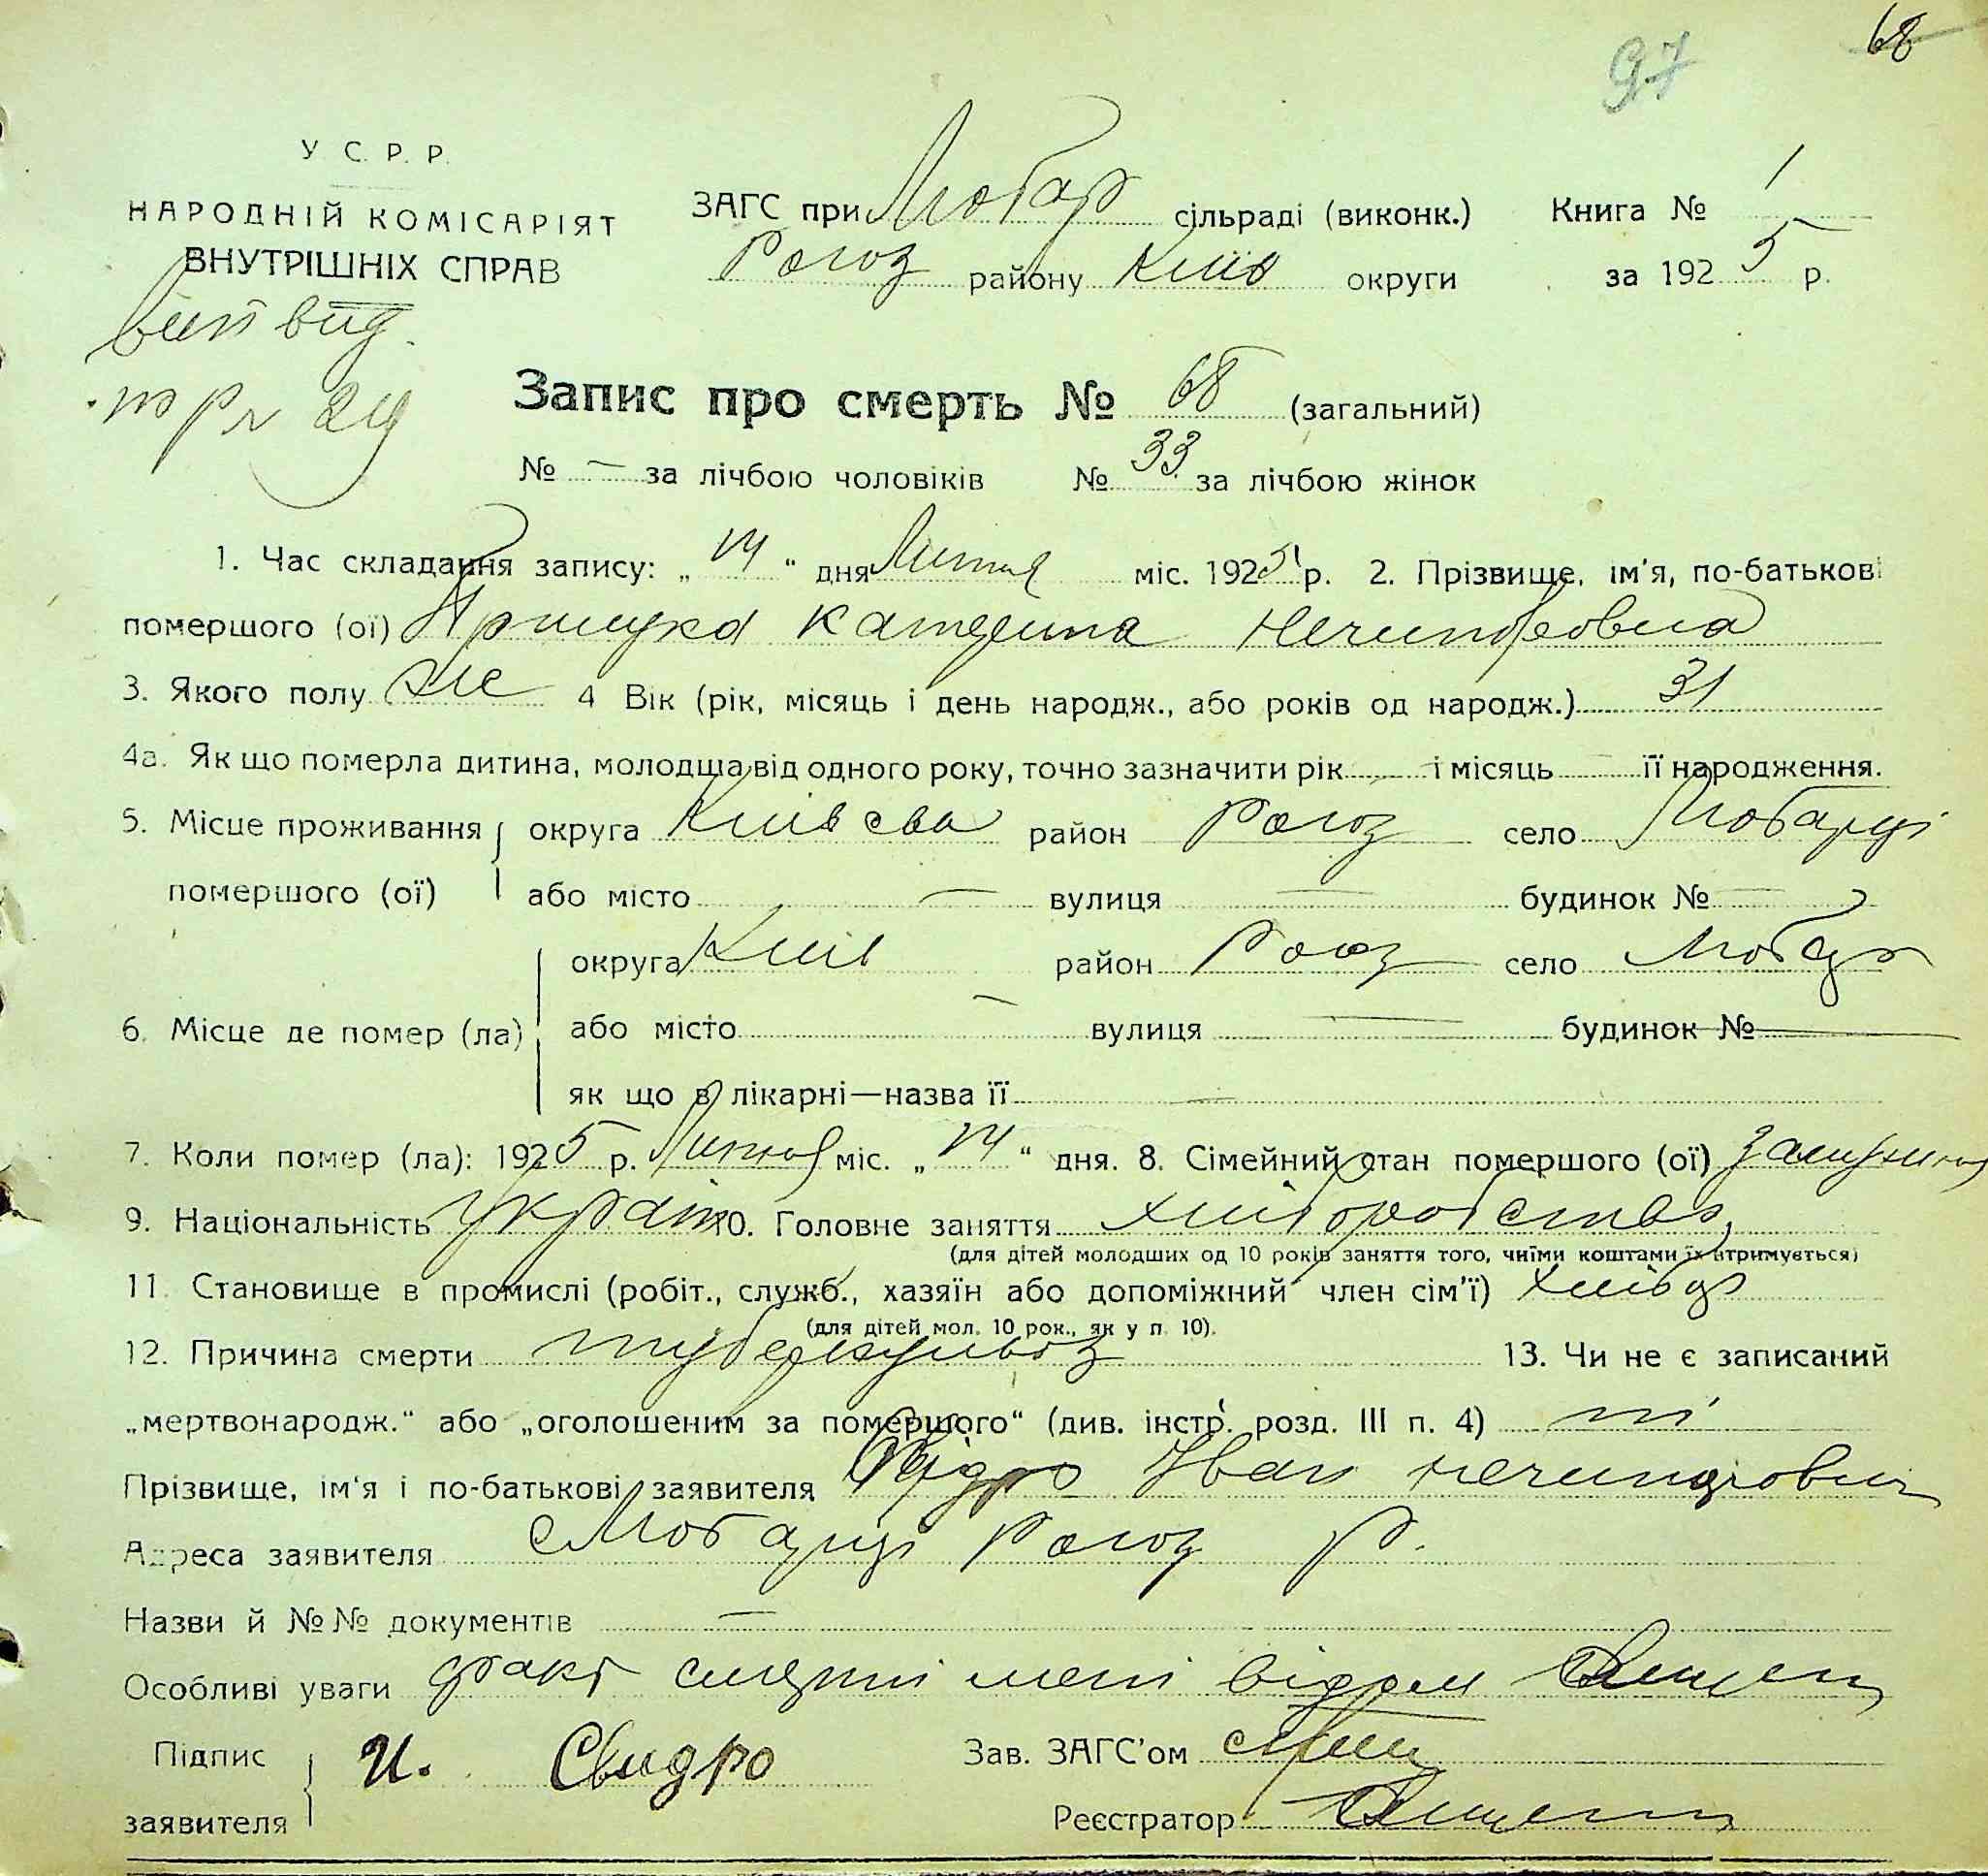 68
97
У С. Р. Р.
НАРОДНІЙ КОМІСАРІЯТ
ВНУТРІШНІХ СПРАВ
ЗАГС при Любар сільраді (виконк.) Книга № 1
Рогоз району Київ округи за 1925 р.
Запис про смерть № 68 (загальний)
№ — за лічбою чоловіків № 33 за лічбою жінок
1. Час складання запису: „14“ дня Лютня міс. 1925 р. 2. Прізвище, ім'я, по-батькові
помершого (ої) Катерина Нечипоровна
3. Якого полу Же 4 Вік (рік, місяць і день народж., або років од народж.) 31
4а. Як що померла дитина, молодща від одного року, точно зазначити рік — і місяць — її народження.
5. Місце проживання округа Київська район Рогоз село Любарці
помершого (ої) або місто — вулиця — будинок № —
округа Київ район Рогоз село Любар
6. Місце де помер (ла) або місто — вулиця — будинок № —
як що в лікарні—назва її —
7. Коли помер (ла): 1925 р. Лютня міс. „14“ дня. 8. Сімейний стан помершого (ої) замужня
9. Національність україн 10. Головне заняття хліборобство
(для дітей молодших од 10 років заняття того, чиїми коштами їх втримується)
11. Становище в промислі (робіт., служб., хазяїн або допоміжний член сім'ї)
(для дітей мол. 10 рок., як у п. 10).
12. Причина смерти туберкульоз 13. Чи не є записаний
„мертвонародж.“ або „оголошеним за помершого“ (див. інстр. розд. III п. 4) ні
Прізвище, ім'я і по-батькові заявителя Іван Нечипорович
Адреса заявителя с Любарці Рогоз р.
Назви й №№ документів —
Особливі уваги факт смерті мені відом
Підпис И. Свидро Зав. ЗАГС'ом
заявителя Реєстратор